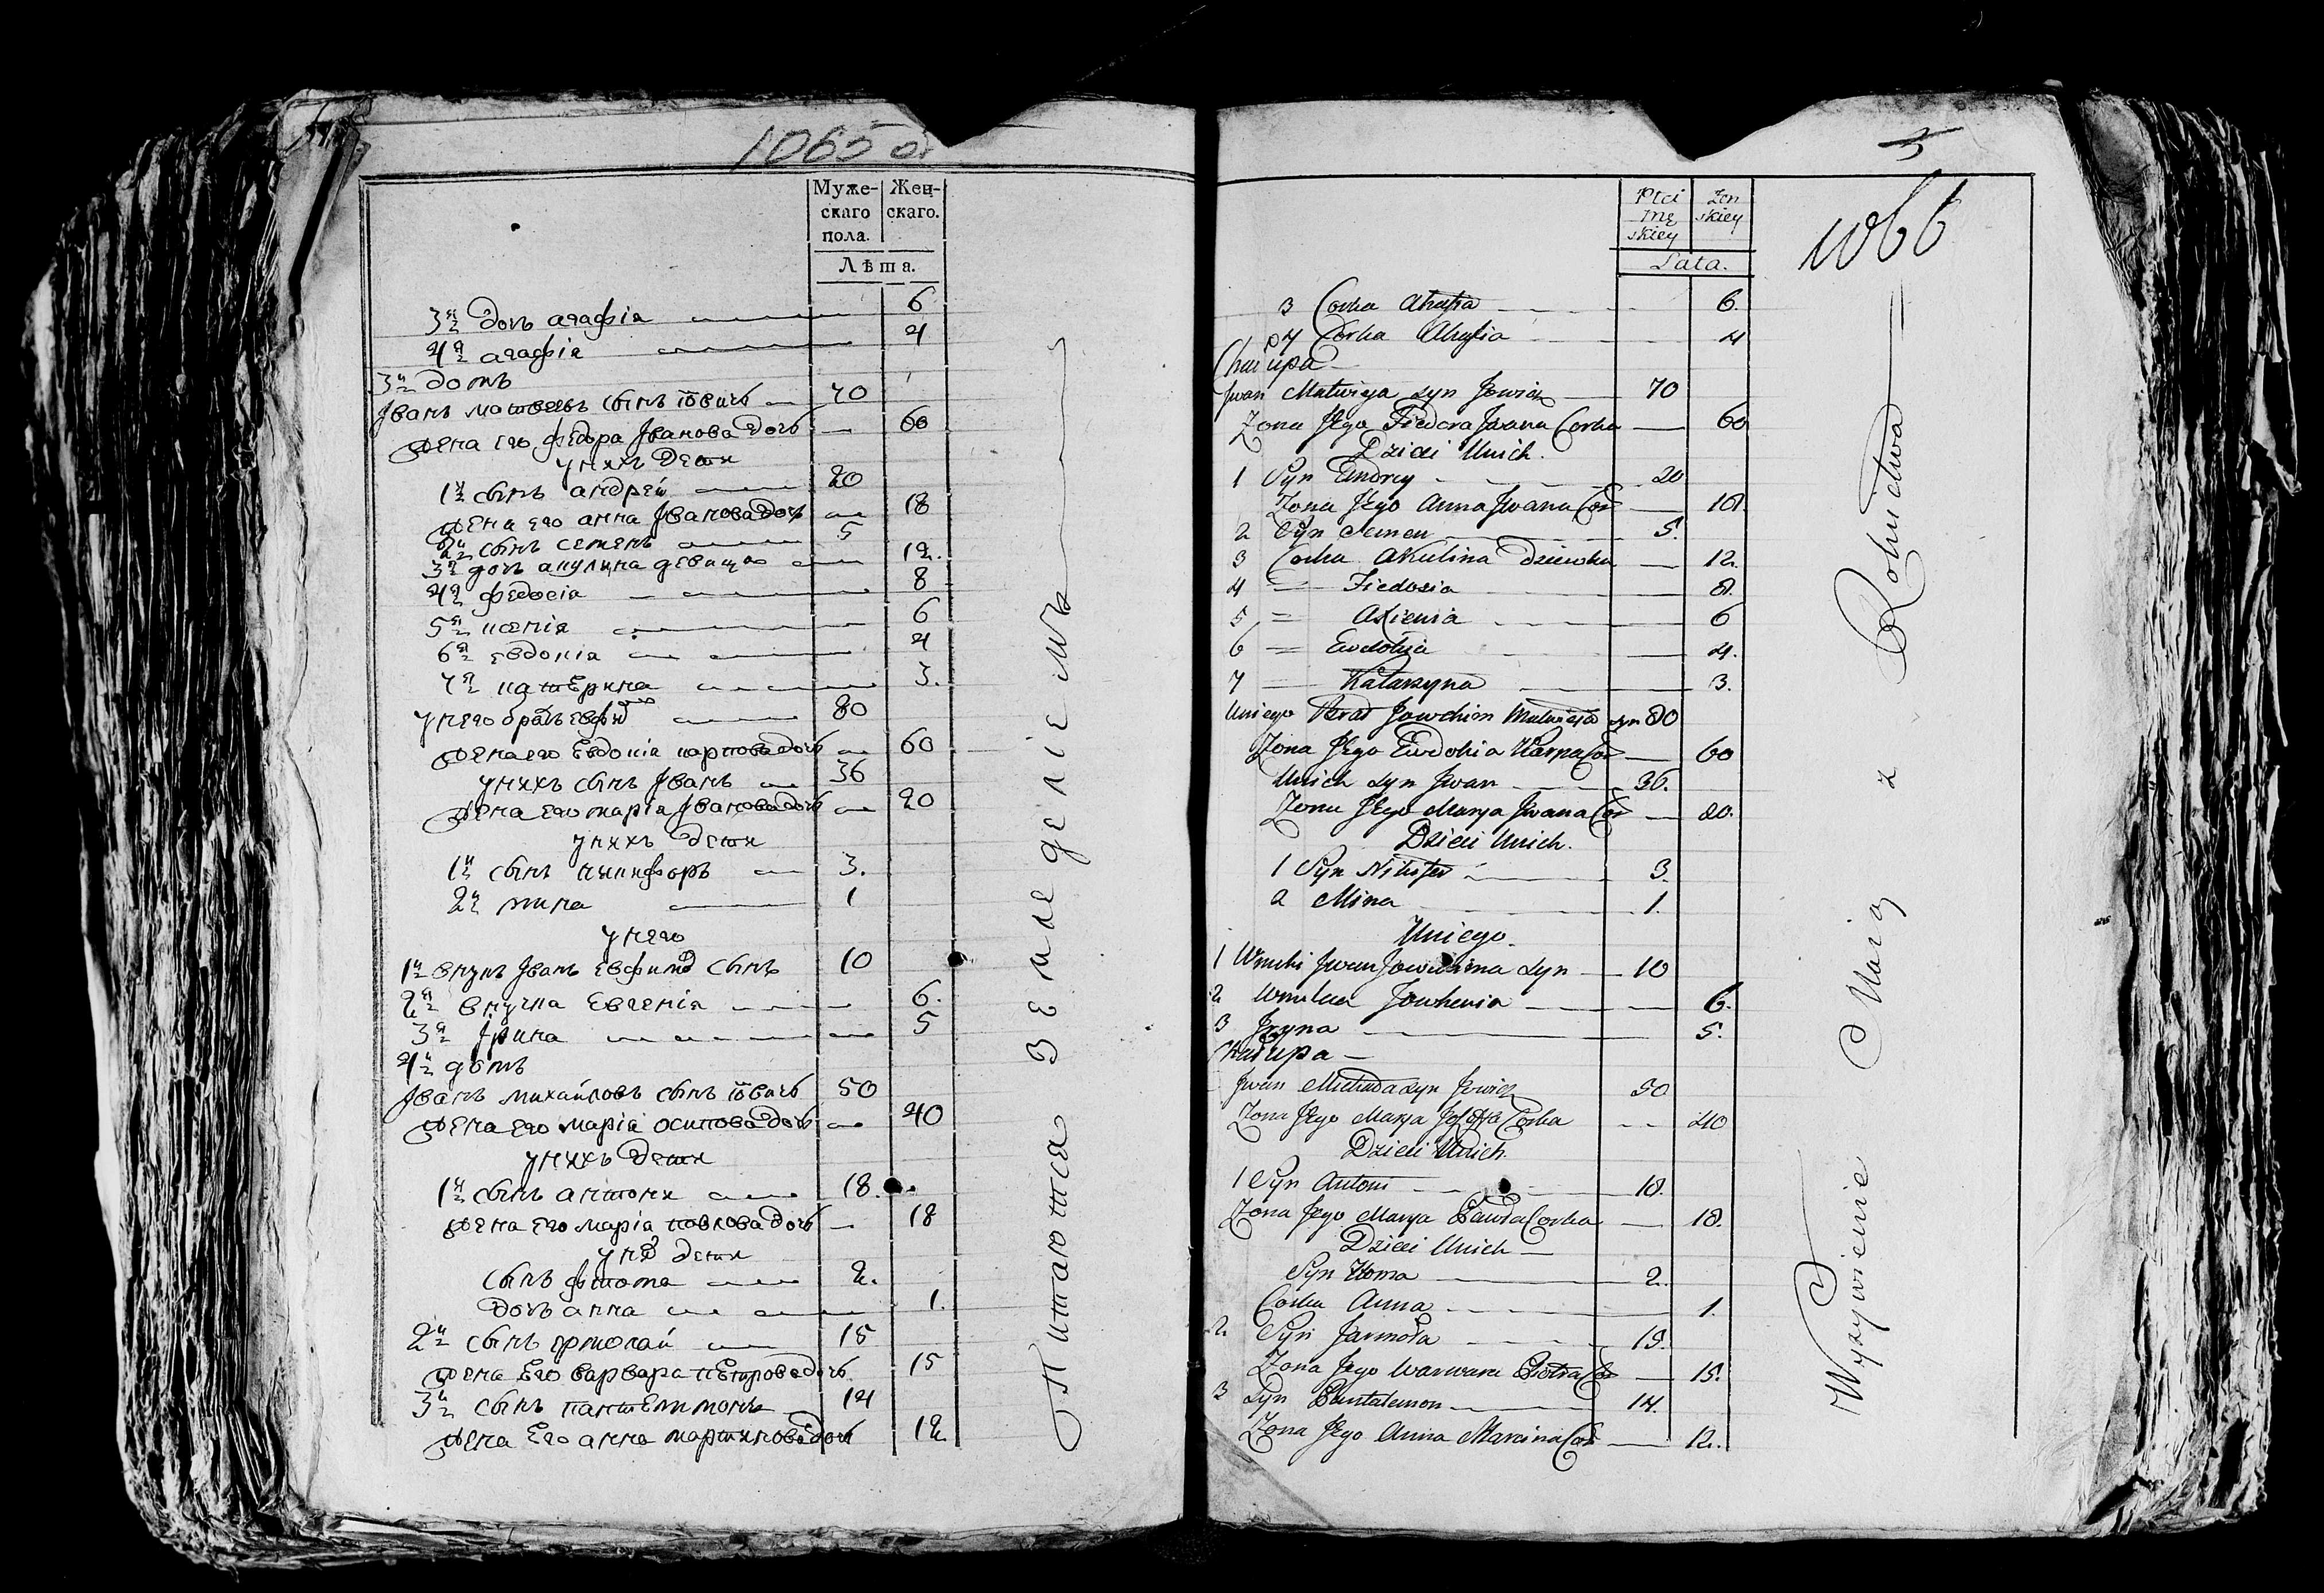 1065 об.
Муже-
скаго
пола.
Жен-
скаго.
Лѣта.
3я дочь агафіа 6
4я агафіа 4
3й домъ
Іванъ матвеевъ сынъ іовичь 70
жена его федора Іванова дочь 60
у нихъ дети
1й сынъ андрей 20
жена его анна Іванова дочь 18
2й сынъ семенъ 5
3я дочь акулина девица 12.
4я федосіа 8
5я ксеніа 6
6я евдокіа 4
7я катерина 3.
у него братъ евфим 80
жена его Евдокіа карпова дочь 60
у нихъ сынъ Іванъ 36
жена его маріа Іванова дочь 20
у нихъ дети
1й сынъ никифоръ 3.
2й мина 1
у него
1й внукъ Іванъ Евфимов сынъ 10
2я внучка Евгеніа 6.
3я Ірина 5
4й домъ
Іванъ михайловъ сынъ іовичь 50
жена его маріа осипова дочь 40
у нихъ дети
1й сынъ антони 18.
жена его маріа павлова дочь 18
у них дети
сынъ фтома 2.
дочь анна 1.
2й сынъ ярмолай 15
жена Его варвара петрова дочь 15
3й сынъ пантелимонъ 14
жена Его анна мартинова дочь 12.
Питаютса земледеліемъ
5
1066
Płci
mę
skiey
Żen
skiey
Lata.
3 Corka Ahafia 6.
4 Corka Ahafia 4
Chałupa
Jwan Matwieja syn Jowicz 70
Zona Jego Fiedora Jwana Corka 60
Dzieci Unich.
1 Syn Andrey 20
Zona Jego Anna Jwana Cor 18
2 Syn Semen 5.
3 Corka Akulina Dziewka 12.
4 = Fiedosia 8.
5 = Axienia 6
6 = Ewdokia 4.
7 Katarzyna 3.
Uniego Brat Jowchim Matwieja syn 80
Zona Jego Ewdokia Karpa Cor 60
Unich syn Jwan 36.
Zona Jego Marya Jwana Cor 20.
Dzieci Unich.
1 Syn Nikifor 3.
2 Mina 1.
Uniego
1 Wnuk Jwan Jowchima syn 10
2 Wnuczka Jewhenia 6.
3 Jryna 5.
Chałupa
Jwan Michała syn Jowicz 50
Zona Jego Marya Jozefa Corka 40
Dzieci Unich
1 Syn Antoni 18.
Zona Jego Marya Pawła Corka 18.
Dzieci Unich
Syn Homa 2.
Corka Anna 1.
2 Syn Jarmoła 15.
Zona Jego Warwara Piotra Cor 15.
3 Syn Pantalemon 14.
Zona Jego Anna Marcina Cor 12.
Wyzywienie Maią z Rolnictwa